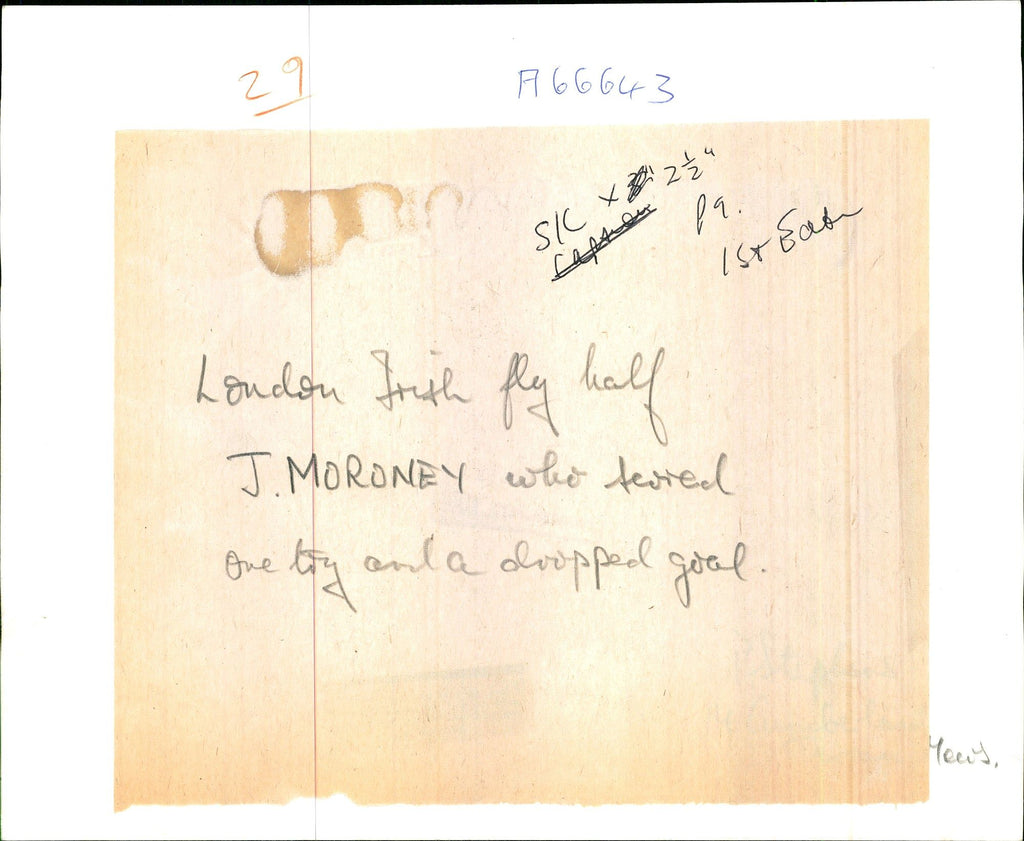 29
A66643
S/C x 2½"
Caption
P9.
1st Edtn
London Irish fly half
J. MORONEY who scored
one try and a dropped goal.